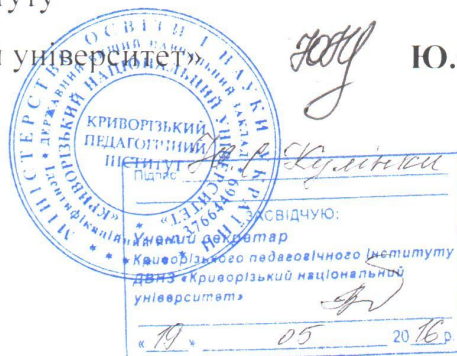 туту
університет»
Ю.
МІНІСТЕРСТВО ОСВІТИ І НАУКИ УКРАЇНИ
ДЕРЖАВНИЙ ВИЩИЙ НАВЧАЛЬНИЙ ЗАКЛАД
«КРИВОРІЗЬКИЙ НАЦІОНАЛЬНИЙ УНІВЕРСИТЕТ»
37664469
КРИВОРІЗЬКИЙ
ПЕДАГОГІЧНИЙ
ІНСТИТУТ
Підпис Кулінки
ЗАСВІДЧУЮ:
Учений секретар
Криворізького педагогічного інституту
ДВНЗ «Криворізький національний
університет»
« 19 » 05 2016 р